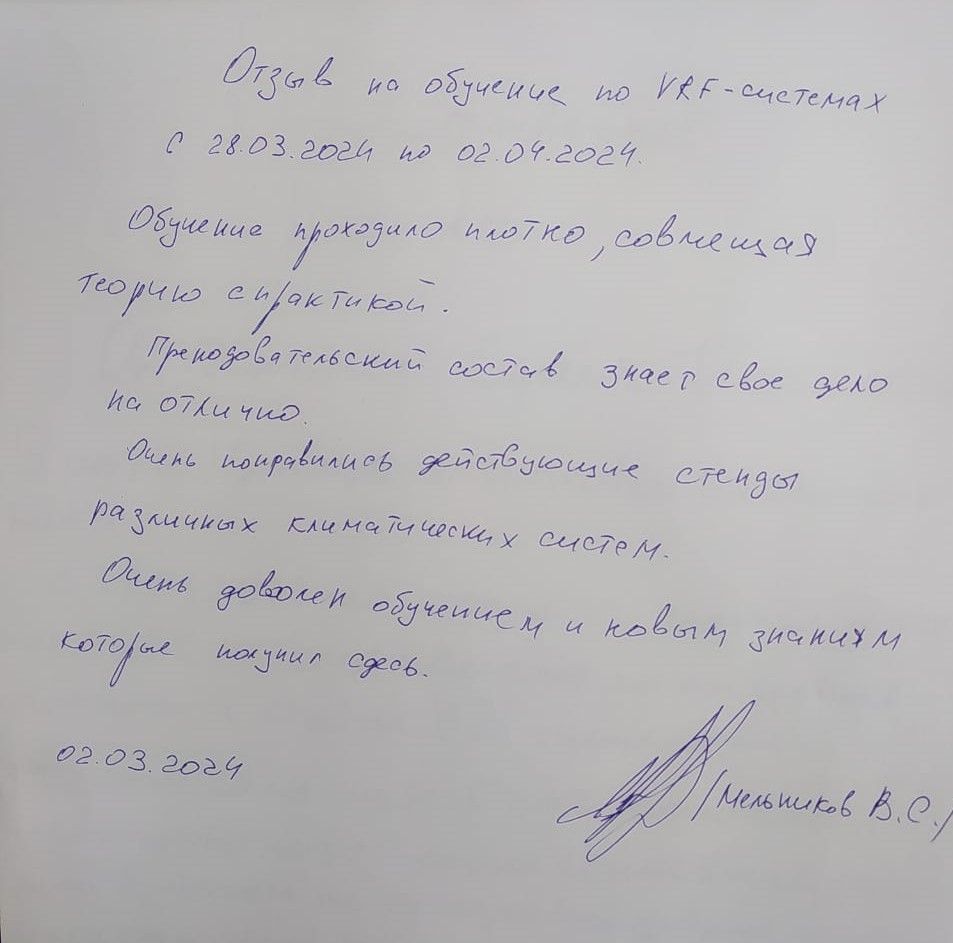 Отзыв на обучение по VRF-системах
с 28.03.2024 по 02.04.2024.
Обучение проходило плотно, совмещая
теорию с практикой.
Преподовательский состав знает свое дело
на отлично.
Очень понравились действующие стенды
различных климатических систем.
Очень доволен обучением и новым знаниям
которые получил сдесь.
02.03.2024
/Мельников В.С./